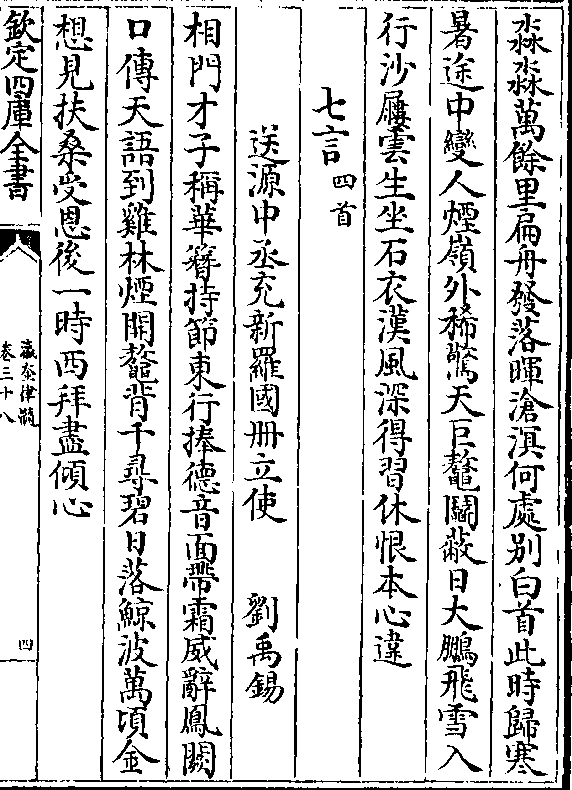 淼淼萬餘里扁舟發落暉滄溟何處別白首此時歸寒
暑途中變人煙嶺外稀驚天巨鼇鬬蔽日大鵬飛雪入
行沙屨雲生坐石衣漢風深得習休恨本心違
七言四首
送源中丞充新羅國册立使 劉禹錫
相門才子稱華簪持節東行捧德音面帶霜威辭鳳闕
口傳天語到雞林煙開鼇背千尋碧日落鯨波萬頃金
想見扶桑受恩後一時西拜盡傾心
欽定四庫全書
瀛奎律髓
卷三十八
四